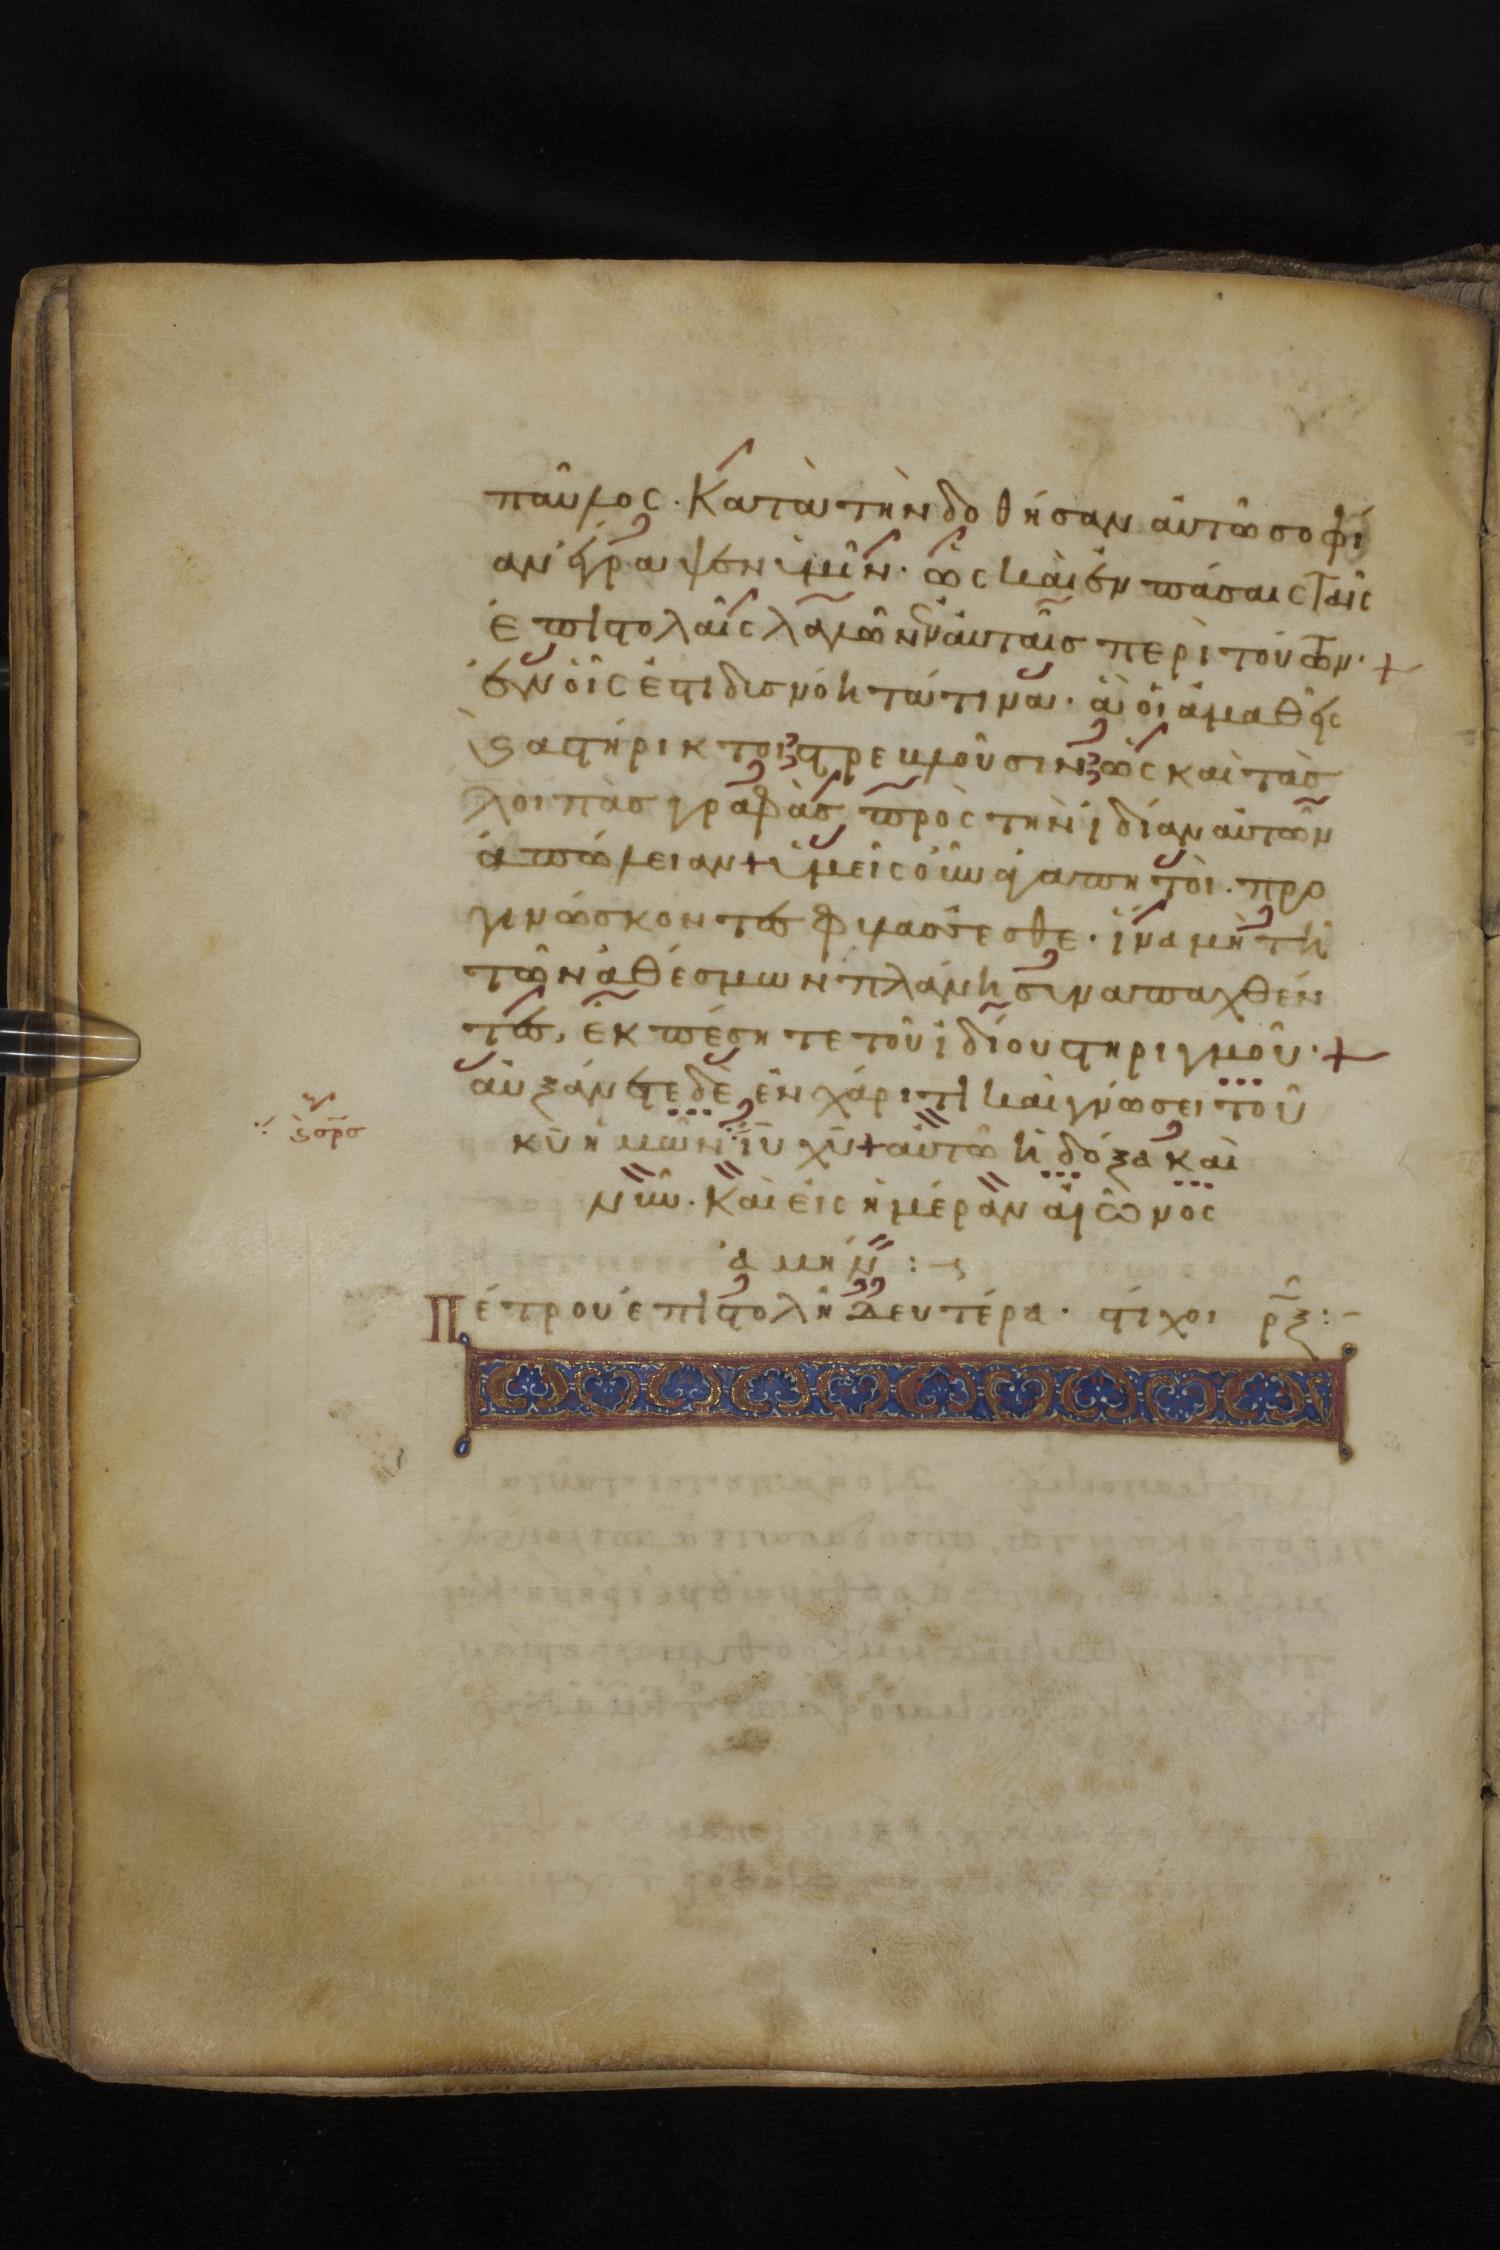 παῦλος· Κατὰ τὴν δοθήσαν ἀυτῶ σοφί
αν ἔγραψεν ὑμῖν· ὡς καὶ ἐν πάσαις ταῖς
ἐπιστολαῖς λαλῶν ἐν ἀυταῖς περὶ τούτων· +
ἐν οἷς ἐστι δυσνόητά τινα· ἃ οἱ ἀμαθεῖς
ϗ ἀστήρικτοι στρεβλοῦσιν ὡς καὶ τὰς
λοιπὰς γραφὰς πρὸς τὴν ἰδίαν αὐτῶν
ἀπώλειαν + ὑμεῖς οὖν ἀγαπητοὶ· προ
γινώσκοντες φυλάσσεσθε· ἵνα μὴ τῆ
τῶν ἀθέσμων πλάνη συναπαχθέν
τες, ἐκπέσητε τοῦ ἰδίου στηριγμοῦ· +
ἀυξάνετε δὲ ἐν χάριτι καὶ γνώσει τοῦ
κ̅υ̅ ἡμῶν ι̅υ̅ χ̅υ̅ + ἀυτῶ ἡ δόξα καὶ
νῦν· Καὶ εἰς ἡμέραν αἰῶνος
ἀμήν :~
Πέτρου ἐπιστολὴ Δευτέρα· στίχοι ρ̅ξ :~